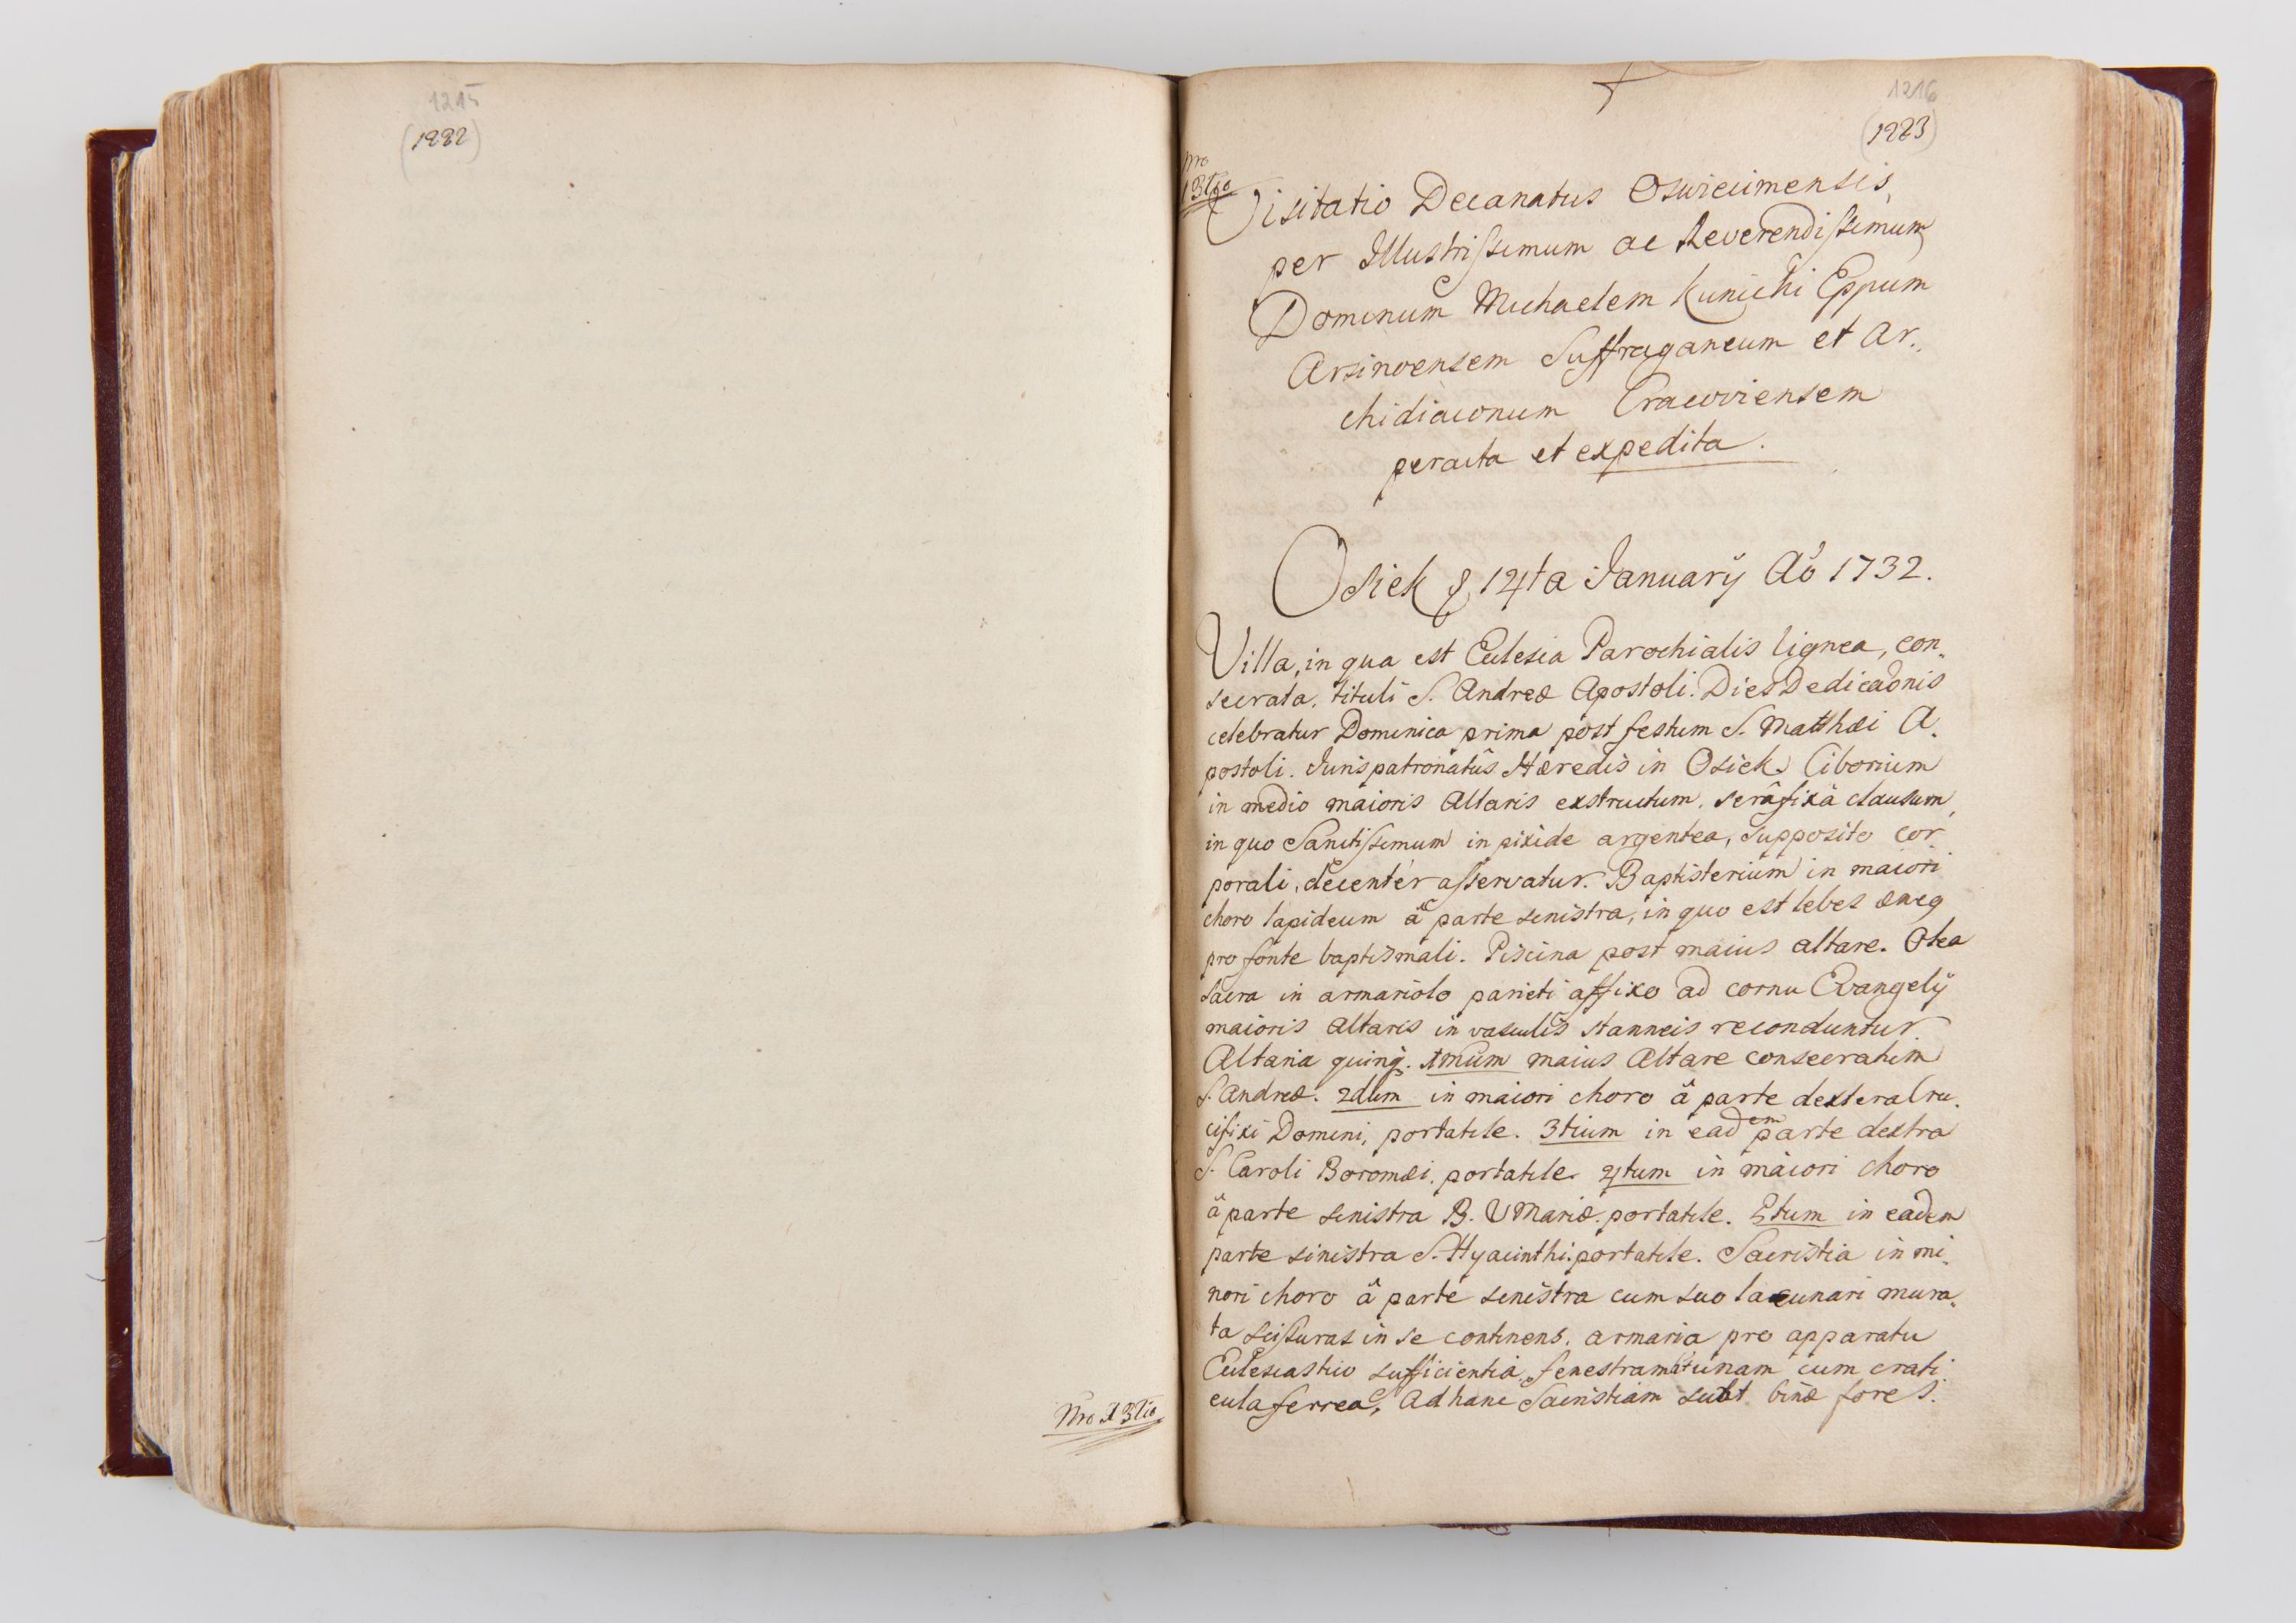 1215
(1222)
Nro 13tio
1216
(1223)
Nro
13tio
Visitatio Decanatus Oswiecimensis
per Illustrissimum ac Reverendissimum
Dominum Michaelem Kunicki Eppum
Arsinoensem Suffraganeum et Ar-
chidiaconum Cracoviensem
peracta et expedita.
Osiek 14ta Januarij Aô 1732.
Villa, in qua est Ecclesia Parochialis lignea, con-
secrata, tituli S. Andreæ Apostoli. Dies Dedicaônis
celebratur Dominica prima post festum S. Matthæi A-
postoli. Juris patronatûs Hæredis in Osiek. Ciborium
in medio maioris Altaris exstructum, serâ fixâ clausum,
in quo Sanctissimum in pixide argentea, supposito cor-
porali, decenter asservatur. Baptisterium in maiori
choro lapideum â parte sinistra, in quo est lebes æneus
pro fonte baptismali. Piscina post maius altare. Olea
sacra in armariolo parieti affixo ad cornu Evangelij
maioris Altaris in vasculis stanneis reconduntur.
Altaria quinq. 1mum maius Altare consecratum
S. Andreæ. 2dum in maiori choro â parte dextera Cru-
cifixi Domini, portatile. 3tium in eadem parte dextra
S. Caroli Boromæi, portatile. 4tum in maiori choro
â parte sinistra B. V Mariæ. portatile. 5tum in eadem
parte sinistra S. Hyacinthi. portatile. Sacristia in mi-
nori choro â parte sinistra cum suo lacunari mura-
ta scissuras in se continens, armaria pro apparatu
Ecclesiastico sufficientia, fenestram unam cum crati-
cula ferrea, Ad hanc Sacristiam sunt binæ fores.